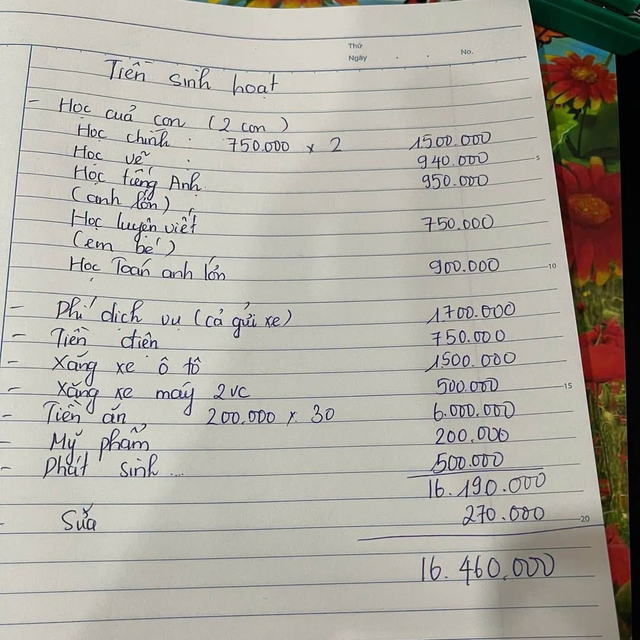 Thứ
Ngày . . No.
Tiền sinh hoạt
- Học cuả con (2 con)
Học chính : 750.000 x 2 1500.000
Học vẽ : 940.000
5
Học tiếng Anh 950.000
(anh lớn)
Học luyện viết 750.000
(em bé)
Học Toán anh lớn 900.000
10
- Phí dịch vụ (cả gửi xe) 1700.000
- Tiền điện 750.000
- Xăng xe ô tô 1500.000
- Xăng xe máy 2vc 500.000
15
- Tiền ăn 200.000 x 30 6.000.000
- Mỹ phẩm 200.000
- Phát sinh... 500.000
16.190.000
- Sữa 270.000
20
16.460.000